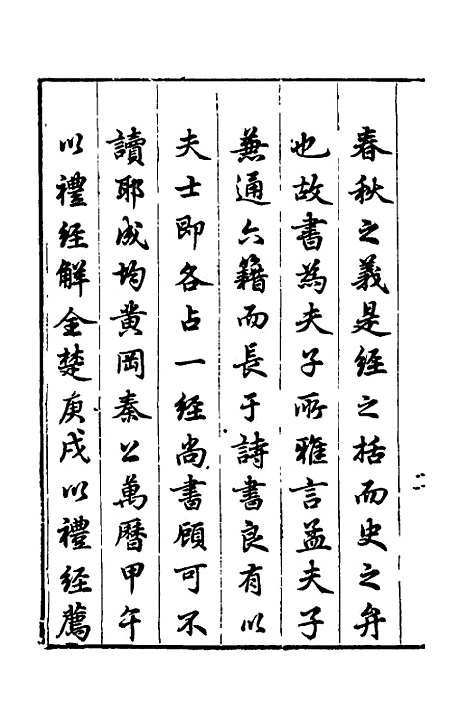 春秋之義是經之括而史之弁
也故書為夫子所雅言孟夫子
兼通六籍而長于詩書良有以
夫士即各占一經尚書顧可不
讀耶成均黄岡秦公萬曆甲午
以禮經解全楚庚戌以禮經薦